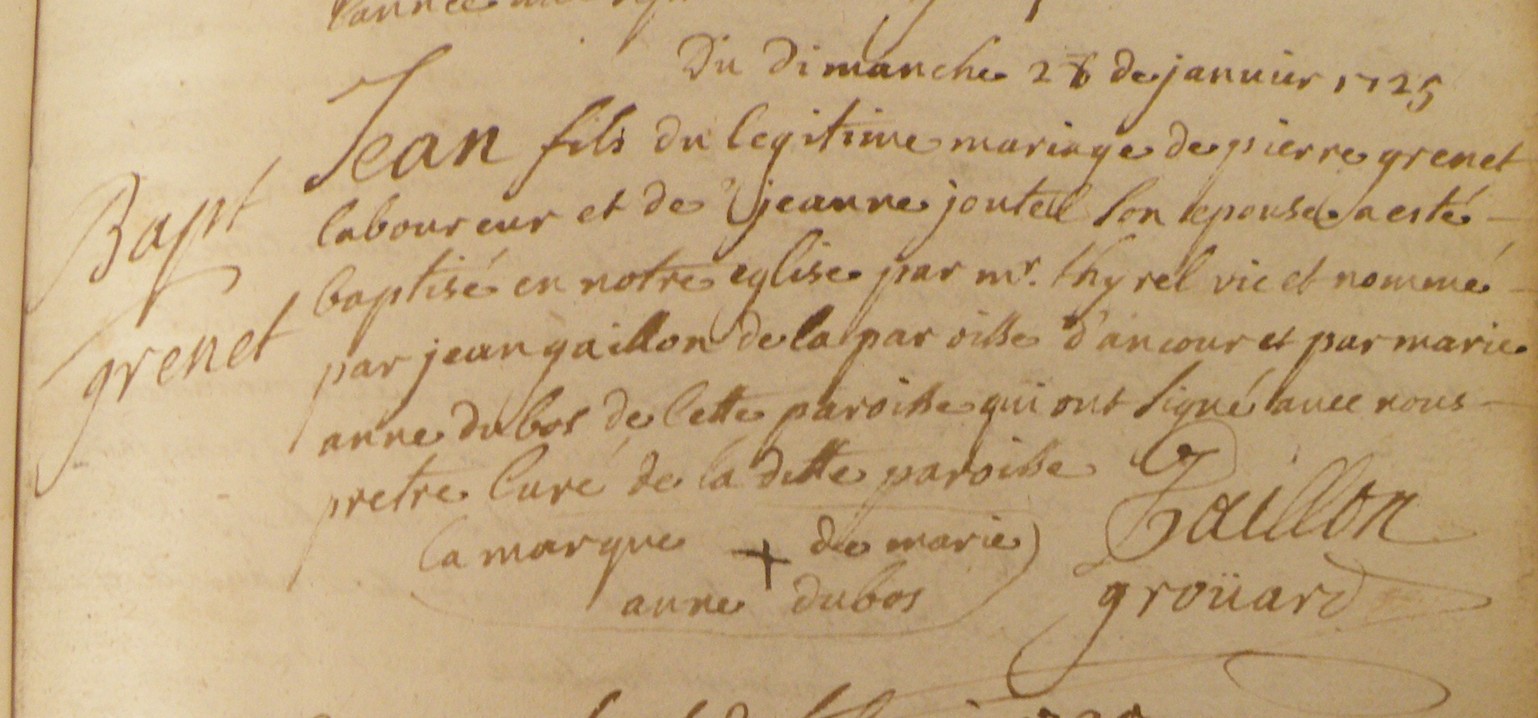 l'année
Du Dimanche 28 de januier 1725
Jean fils du legitime mariage de pierre grenet
Bapt
laboureur et de jeanne jouteul son epouse a esté
baptisé en notre eglise par mr. thyrel vic et nommé
grenet
par jean gaillon de la paroisse d'ancour et par marie
anne dubos de cette paroisse qui ont signé auec nous
pretre curé de la ditte paroisse
Gaillon
la marque + de marie
anne dubos
groüard